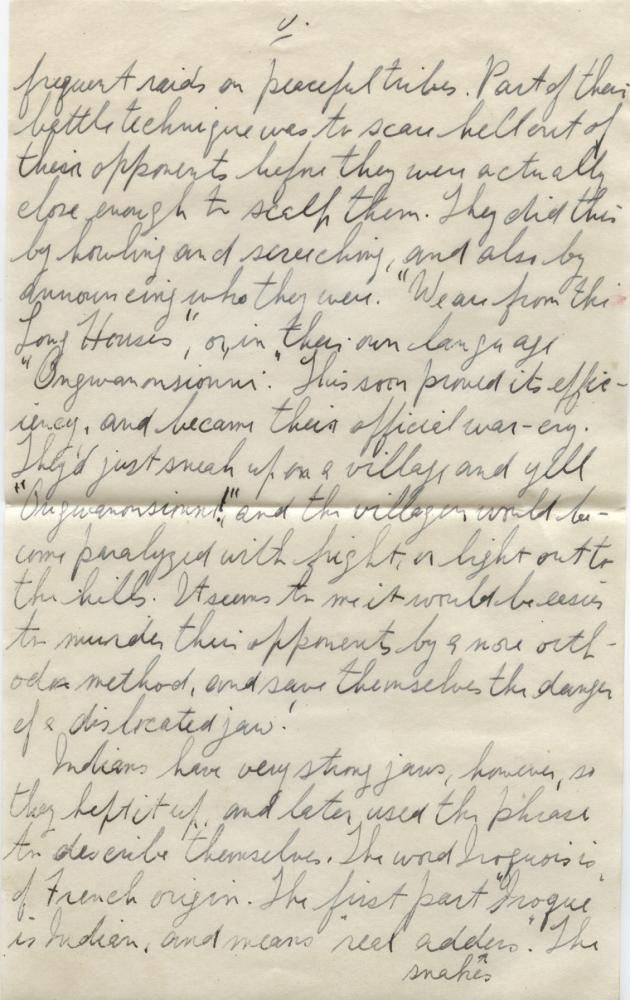 v.
frequent raids on peaceful tribes. Part of their
battle technique was to scare hell out of
their opponents before they were actually
close enough to scalp them. They did this
by howling and screeching, and also by
announcing who they were. "We are from the
Long Houses", or, in their own language
"Ongwanonsionni." This soon proved its effic-
iency, and became their official war-cry.
They'd just sneak up on a village and yell
"Ongwanonsionni!" and the villagers would be-
come paralyzed with fright, or light out to
the hills. It seems to me it would be easier
to murder their opponents by a more orth-
odox method, and save themselves the danger
of a dislocated jaw!
Indians have very strong jaws, however, so
they kept it up, and later used the phrase
to describe themselves. The word Iroquois is
of French origin. The first part "Iroque"
is Indian, and means "real adders". The
snakes